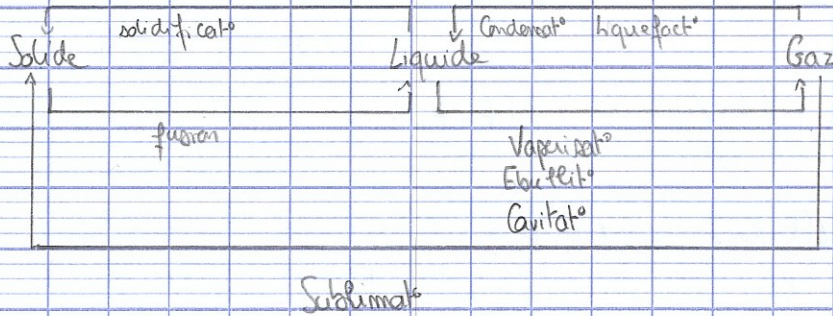 solidificat° Condensat° liquefact°
Solide Liquide Gaz
fusion
Vaporisat°
Ebullit°
Cavitat°
Sublimat°